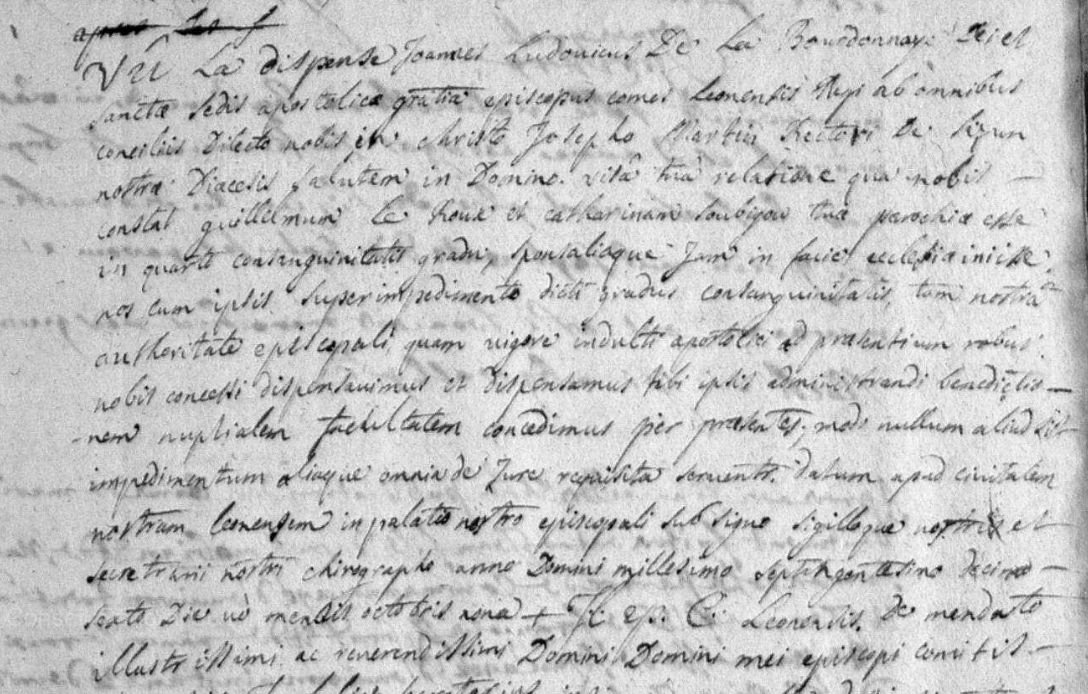 après les f
Vu La dispense Joannes Ludovicus De La Bourdonnaye Dei et
sanctæ sedis apostolicæ gratia episcopus comes Leonensis Regi ab omnibus
consiliis Dilecto nobis in christo Josepho Martin Rectori De Sizun
nostræ Diæcesis salutem in Domino. vità tuà relatione qua nobis
constat guillelmum Le Roux et catharinam soubigou tuæ parochiæ esse
in quarto consanguinitatis gradu, sponsaliaque Jam in facie ecclesiæ iniisse,
nos cum ipsis super impedimento dicti gradus consanguinitatis, tam nostra
authoritate episcopali quam vigore indulti apostolici ad præsentium
nobis concessi dispensauimus et dispensamus tibi ipsis administrandi benedictio-
-nem nuptialem facultatem concedimus per præsentes, modo nullum aliud sit
impedimentum aliaque omnia de Jure requisita seruentr. datum apud ciuitatem
nostram leonensem in palatio nostro episcopali sub signo sigilloque nostris et
secretarii nostri chirographo anno Domini millesimo septingentesimo decimo
sexto Die vè mensis octobris nona + J. L. ep. C. Leonensis. De mandato
illustrissimi ac reverendissimi Domini Domini mei episcopi comitis